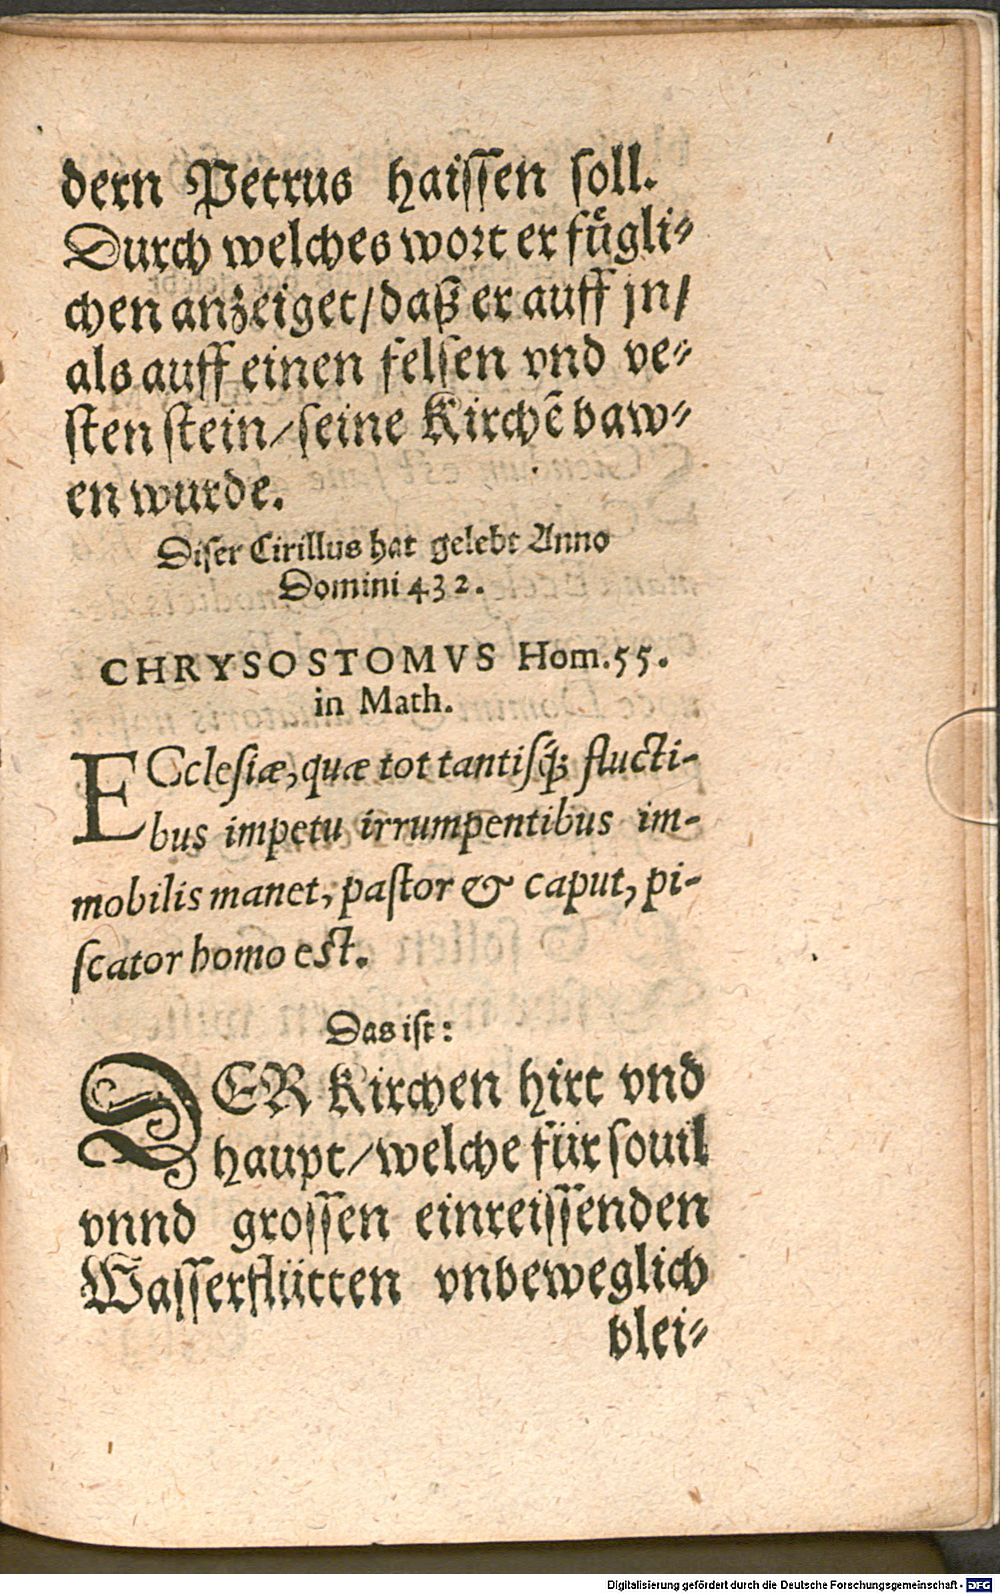 dern Petrus haissen soll.
Durch welches wort er fuͤgli⸗
chen anzeiget/daß er auff jn/
als auff einen felsen vnd ve⸗
sten stein/seine Kirchẽ baw⸗
en wurde.
Diser Cirillus hat gelebt Anno
Domini 432.
CHRYSOSTOMVS Hom.55.
in Math.
ECclesiæ, quæ tot tantisq́; flucti-
bus impetu irrumpentibus im-
mobilis manet, pastor & caput, pi-
scator homo est.
Das ist:
DER Kirchen hirt vnd
haupt/welche für souil
vnnd grossen einreissenden
Wasserflütten vnbeweglich
blei⸗
Digitalisierung gefördert durch die Deutsche Forschungsgemeinschaft - DFG